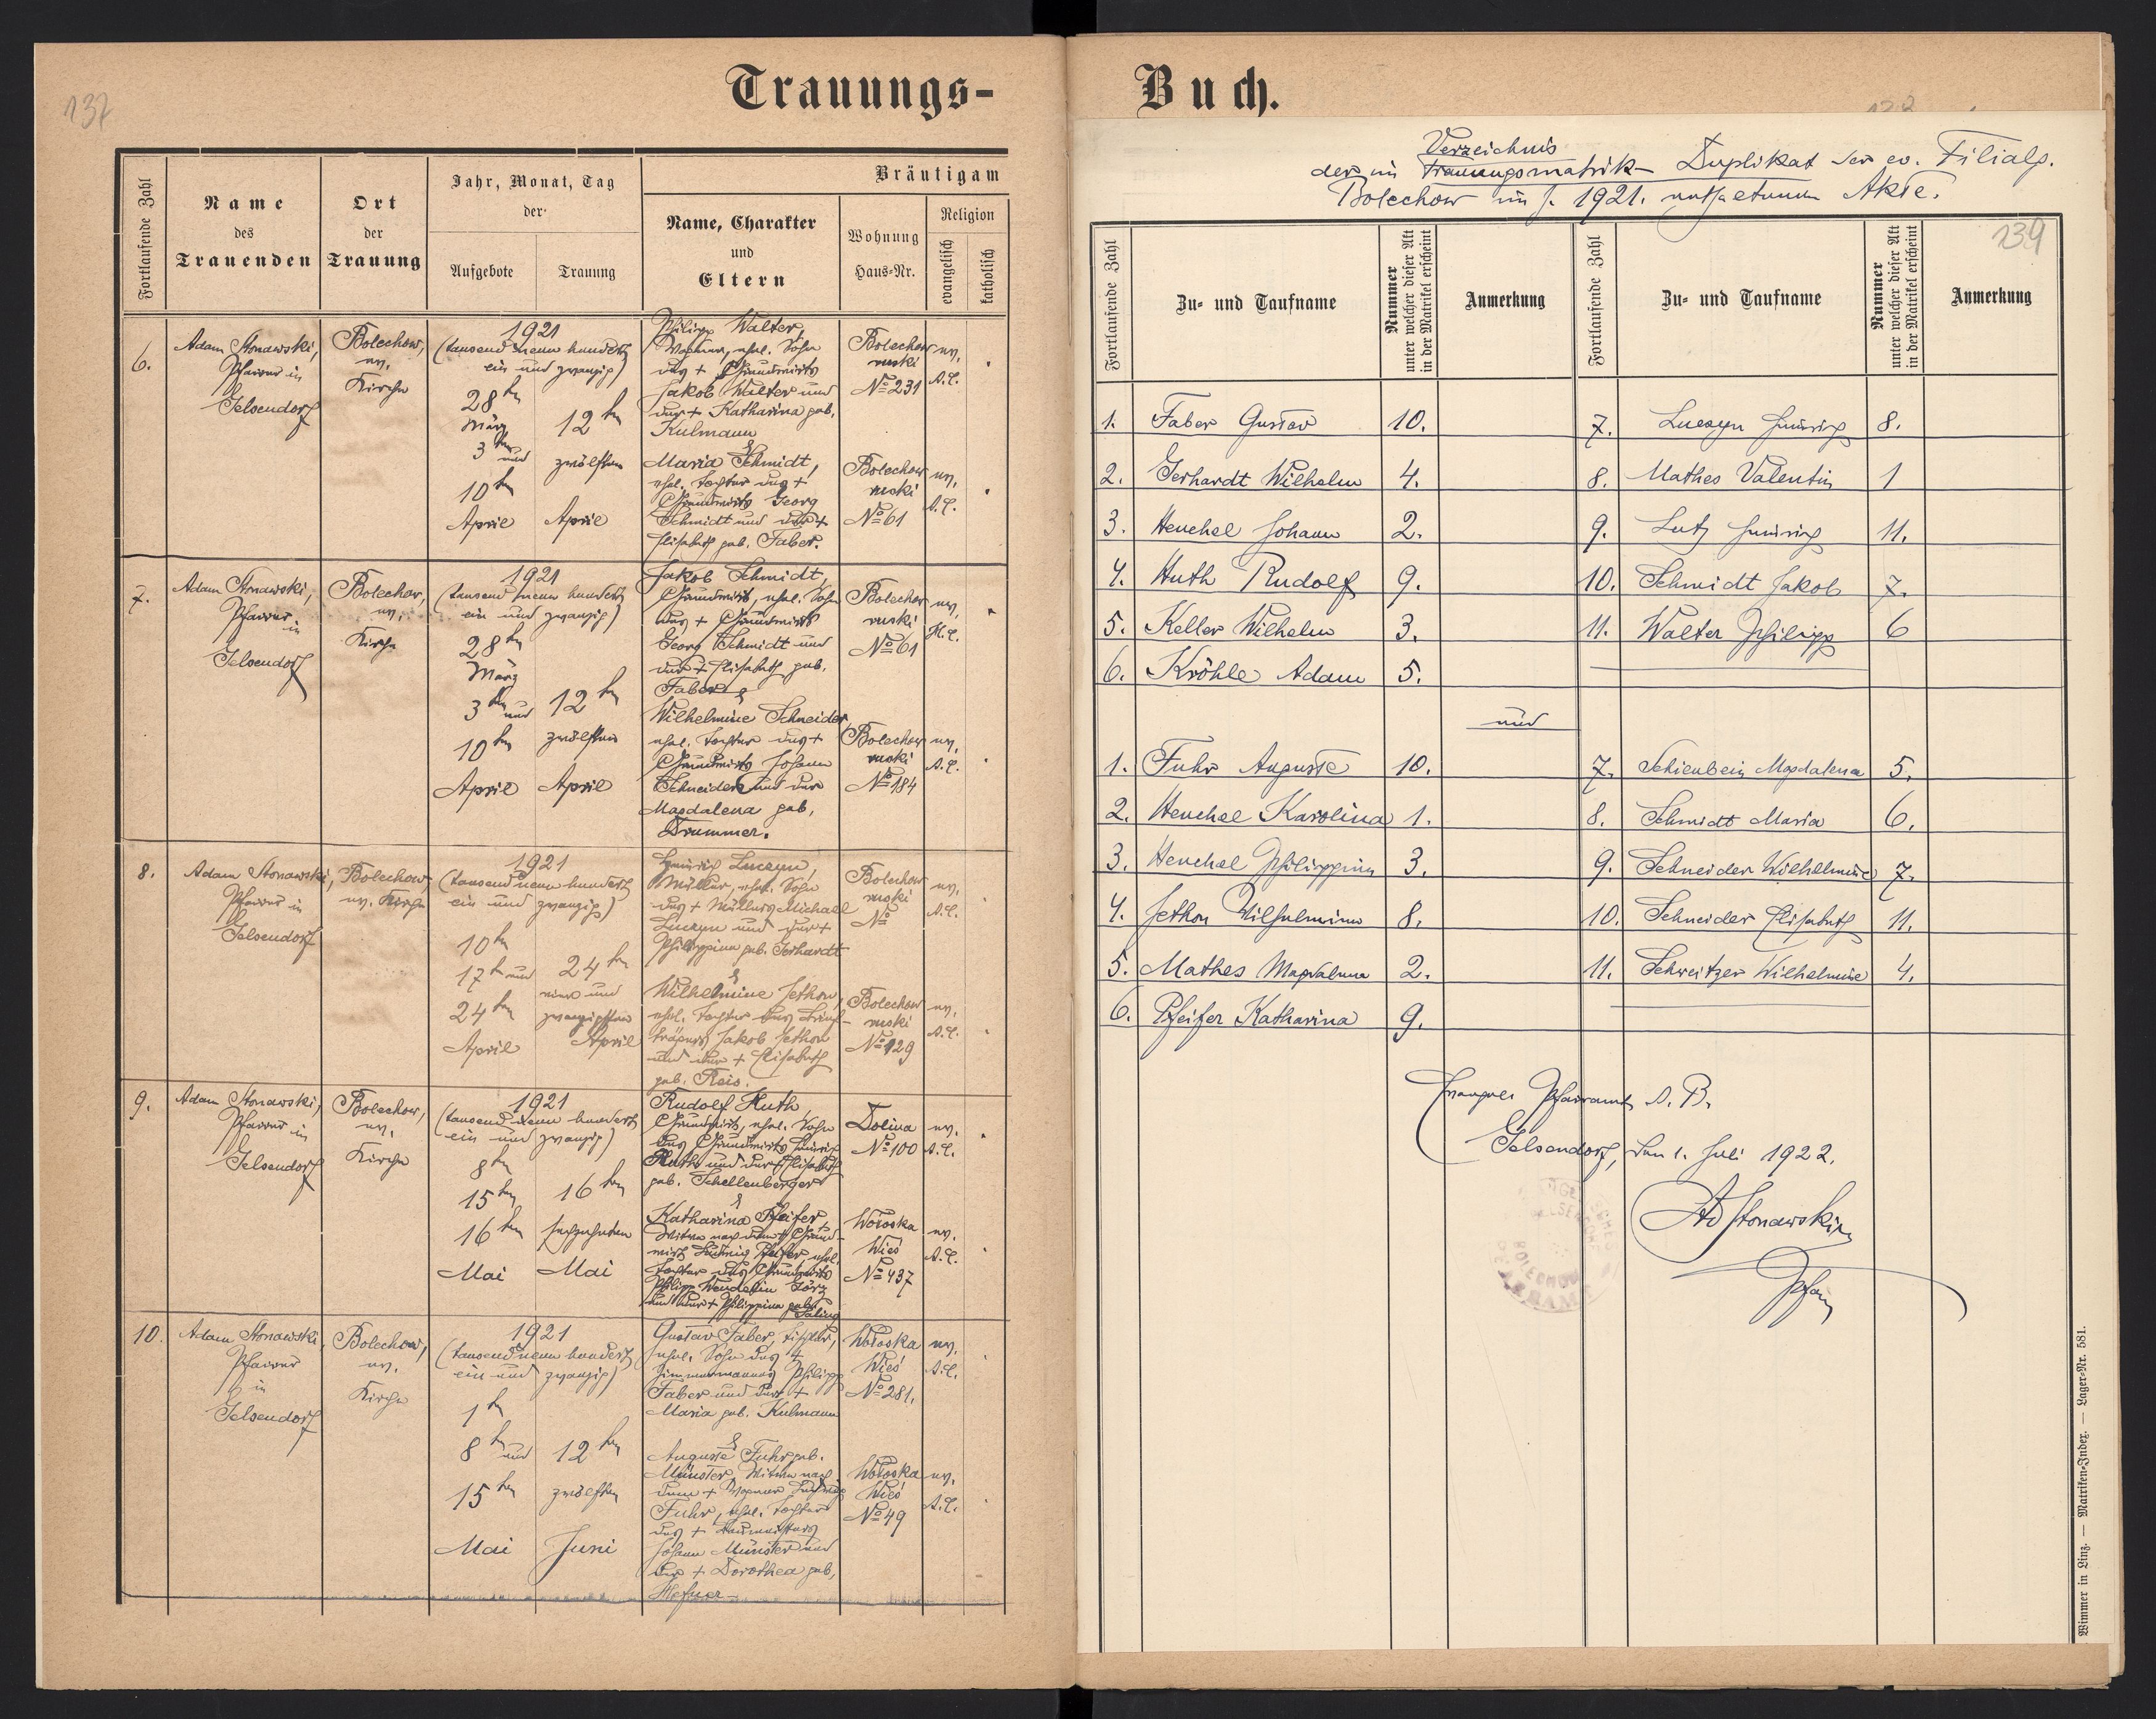 137
Trauungs-
Fortlaufende Zahl
Name
des
Trauenden
Ort
der
Trauung
Jahr, Monat, Tag
der
Aufgebote
Trauung
Bräutigam
Name, Charakter
und
Eltern
Wohnung
Haus-Nr.
Religion
evangelisch
katholisch
6.
Adam Stonawski,
Pfarrer in
Gelsendorf
Bolechow,
ev.
Kirche
1921
(tausend neun hundert
ein und zwanzig)
28ten
März
3ten und
10ten
April
12ten
zwölften
April
Philipp Walter,
Wagner, ehel. Sohn
des + Grundwirts
Jakob Walter und
der + Katharina geb.
Kulmann
&
Maria Schmidt,
ehel. Tochter des +
Grundwirts Georg
Schmidt und der +
Elisabeth geb. Faber.
Bolechow
ruski
No 231
ev.
A.C.
Bolechow
ruski
No 61
ev.
A.C.
7.
Adam Stonawski,
Pfarrer
in
Gelsendorf
Bolechow,
ev.
Kirche
1921
(tausend neun hundert
ein und zwanzig)
28ten
März
3ten und
10ten
April
12ten
zwölften
April
Jakob Schmidt,
Grundwirt, ehel. Sohn
des + Grundwirts
Georg Schmidt und
der + Elisabeth geb.
Faber &
Wilhelmine Schneider,
ehel. Tochter des +
Grundwirts Johann
Schneider und der
Magdalena geb.
Drummer.
Bolechow
ruski
No 61
ev.
A.C.
Bolechow
ruski
No 184
ev.
A.C.
8.
Adam Stonawski,
Pfarrer in
Gelsendorf
Bolechow,
ev. Kirche
1921
(tausend neun hundert
ein und zwanzig)
10ten
17ten und
24ten
April
24ten
vier und
zwanzigsten
April
Heinrich Luczyn,
Müller, ehel. Sohn
des + Müllers Michael
Luczyn und der +
Philippina geb. Gerhardt
&
Wilhelmine Jethon,
ehel. Tochter des Brief-
trägers Jakob Jethon
und der + Elisabeth
geb. Reis.
Bolechow
ruski
No
ev.
A.C.
Bolechow
ruski
No 129
ev.
A.C.
9.
Adam Stonawski,
Pfarrer in
Gelsendorf
Bolechow,
ev.
Kirche
1921
(tausend neun hundert
ein und zwanzig)
8ten
15ten
16ten
Mai
16ten
sechzehnten
Mai
Rudolf Huth,
Grundwirt, ehel. Sohn
des Grundwirts Heinrich
Huth und der Elisabeth
geb. Schellenberger
&
Katharina Pfeifer,
Witwe nach dem + Grund-
wirt Ludwig Pfeifer, ehel.
Tochter des Grundwirts
Philipp Wendelin
und der + Philippina geb.
Dolina
No 100
ev.
A.C.
Wołoska
Wieś
No 437
ev.
A.C.
10.
Adam Stonawski,
Pfarrer
in
Gelsendorf
Bolechow,
ev.
Kirche
1921
(tausend neun hundert
ein und zwanzig)
1ten
8ten und
15ten
Mai
12ten
zwölften
Juni
Gustav Faber, Tischler,
ehel. Sohn des +
Zimmermannes Philipp
Faber und der +
Maria geb. Kulmann
&
Auguste Fuhr geb.
Münster, Witwe nach
dem + Wagner Ludwig
Fuhr, ehel. Tochter
des + Baumeisters
Johann Münster und
der + Dorothea geb.
Hefner
Wołoska
Wieś
No 281.
ev.
A.C.
Wołoska
Wieś
No 49
ev.
A.C.
Buch.
Verzeichnis
der im Trauungsmatrik-Duplikat der ev. Filialg.
Bolechow im J. 1921. enthaltenen Akte.
139
Fortlaufende Zahl
Zu- und Taufname
Nummer
unter welcher dieser Akt
in der Matrikel erscheint
Anmerkung
Fortlaufende Zahl
Zu- und Taufname
Nummer
unter welcher dieser Akt
in der Matrikel erscheint
Anmerkung
1. Faber Gustav 10.
2. Gerhardt Wilhelm 4.
3. Henchel Johann 2.
4. Huth Rudolf 9.
5. Keller Wilhelm 3.
6. Kröhle Adam 5.
7. Luczyn Heinrich 8.
8. Mathes Valentin 1
9. Lutz Heinrich 11.
10. Schmidt Jakob 7.
11. Walter Philipp 6
und
1. Fuhr Auguste 10.
2. Henchel Karolina 1.
3. Henchel Philippina 3.
4. Jethon Wilhelmine 8.
5. Mathes Magdalena 2.
6. Pfeifer Katharina 9.
7. Schienbein Magdalena 5.
8. Schmidt Maria 6.
9. Schneider Wilhelmine 7.
10. Schneider Elisabeth 11.
11. Schweitzer Wilhelmine 4.
Evangel. Pfarramt A. B.
Gelsendorf, den 1. Juli 1922.
Ad Stonawski
Pfarr
Wimmer in Linz. — Matriken-Index. — Lager-Nr. 581.